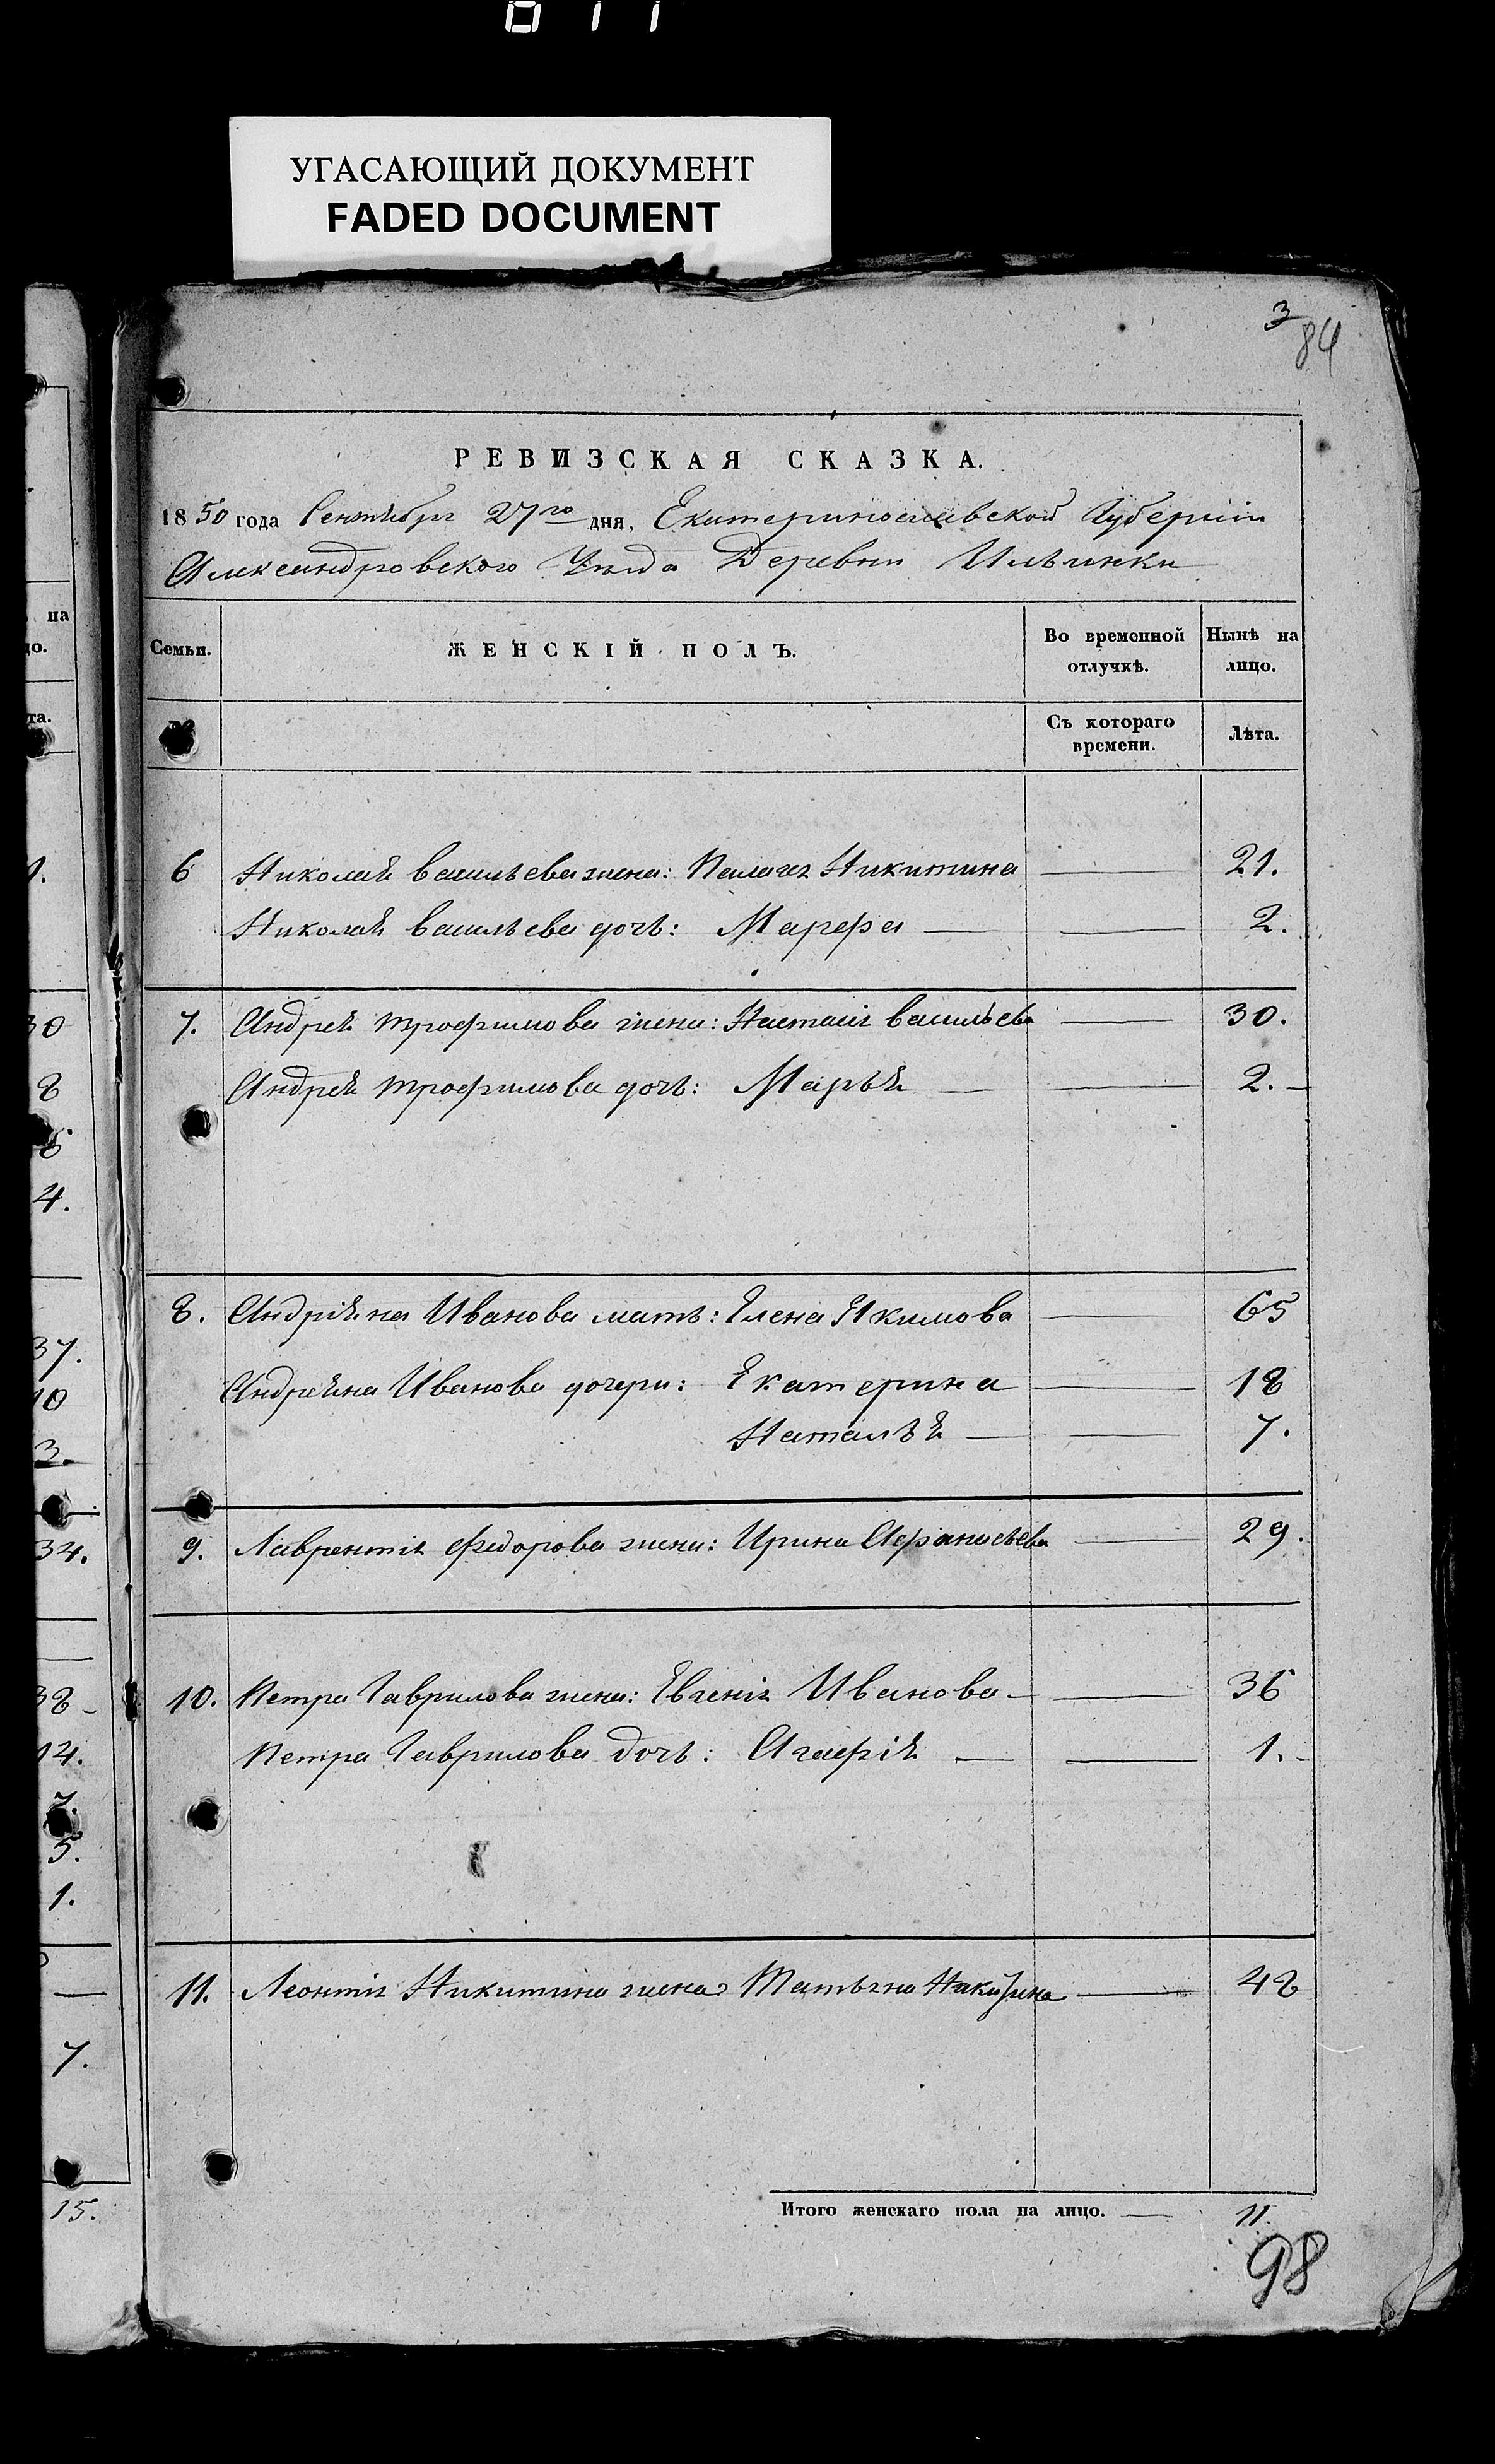 УГАСАЮЩИЙ ДОКУМЕНТ
FADED DOCUMENT
3
84
РЕВИЗСКАЯ СКАЗКА.
1850 года Сентября 27го дня, Екатеринославской Губернии
Александровского Уезда Деревни Ильинки
Семьи.
ЖЕНСКІЙ ПОЛЪ.
Во временной отлучкѣ.
Нынѣ на лицо.
Съ котораго времени.
Лѣта.
6 Николай васильева жена: Пелагея Никитина — 21.
Николай васильева дочь: Марфа — — 2.
7. Андрей трофимова жена: Настасія васильева — 30.
Андрей трофимова дочь: Марья — — 2. —
8. Андріяна Иванова мать: Елена Якимова — 65
Андрияна Иванова дочери: Екатерина — 18
Наталья — — 7.
9. Лаврентія федорова жена: Ирина Афанасьева — 29.
10. Петра Гаврилова жена: Евгенія Иванова — — 36
Петра Гаврилова дочь: Агафія — — 1. -
11. Леонтія Никитина жена Татьяна Никитина — 48
Итого женскаго пола на лицо. — 11.
98
на
та.
1.
30
8
4.
37.
10
3.
34.
38 -
14.
5.
1.
7.
15.